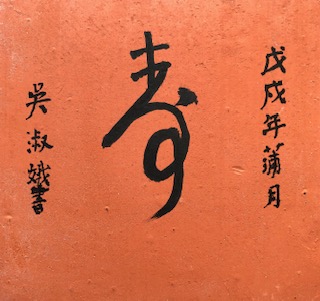 戊戌年蒲月
寿
吳淑娥書